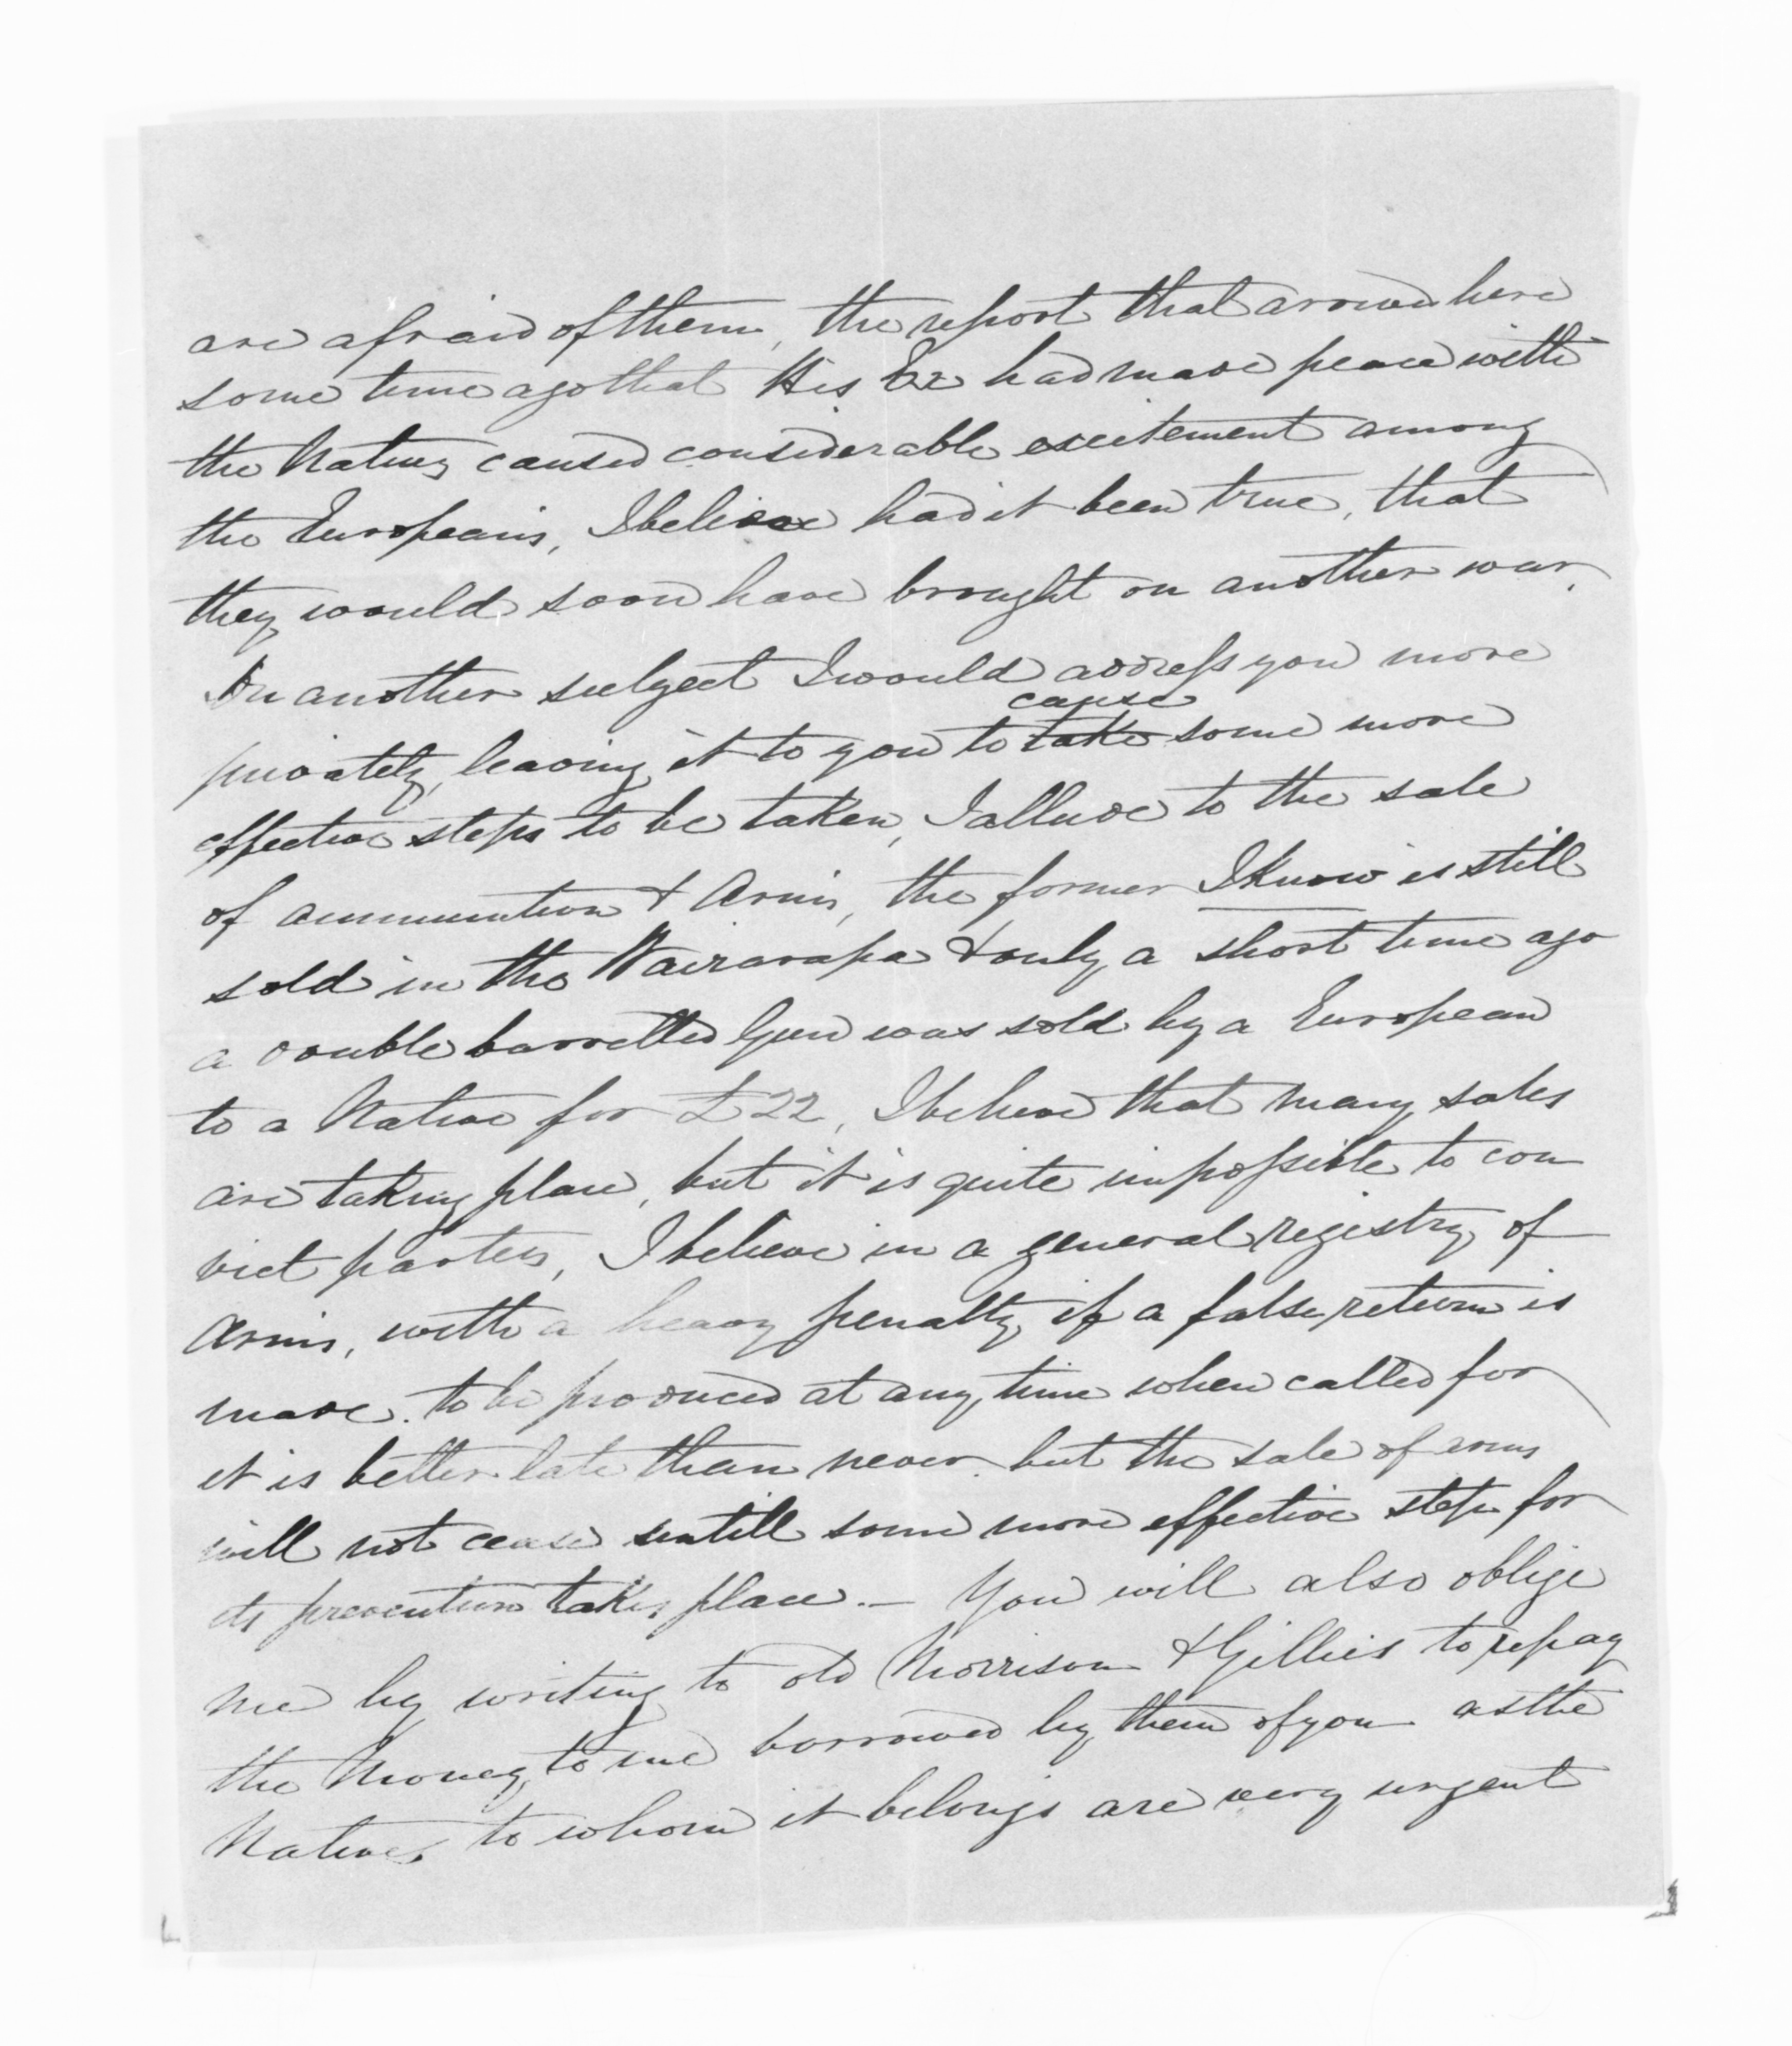 are afraid of them, the report that arrived here
some time ago that His Ex had made peace with
the Natives caused considerable excitement among
the Europeans, I believe had it been true, that
they would soon have brought on another war.
On another subject I would address you more
privately, leaving it to you to ~~take~~ cause some more
effective steps to be taken, I allude to the sale
of ammunition & Arms, the former I know is still
sold in the Wairarapa & only a short time ago
a double barrelled Gun was sold by a European
to a Native for £22, I believe that many sales
are taking place, but it is quite impossible to con
vict parties, I believe in a general registry of
Arms, with a heavy penalty if a false return is
made. to be produced at any time when called for
it is better late than never. but the sale of arms
will not cease untill some more effective step for
its prevention takes place. — You will also oblige
me by writing to old Morrison & Gillies to repay
the Money to me borrowed by them of you as the
Natives to whom it belongs are very urgent